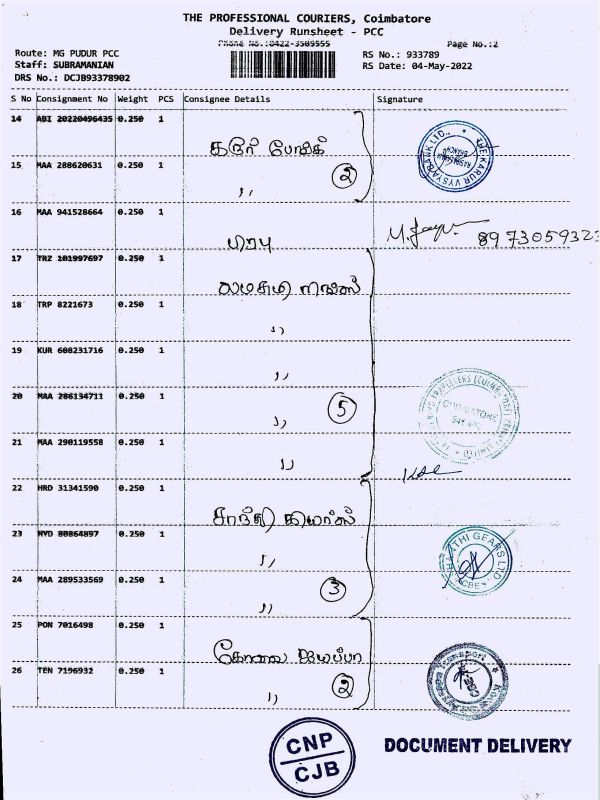 THE PROFESSIONAL COURIERS, Coimbatore
Delivery Runsheet - PCC
Phone No.:0422-3505555
Page No.:2
Route: MG PUDUR PCC
RS No.: 933789
Staff: SUBRAMANIAN
RS Date: 04-May-2022
DRS No.: DCJB93378902
S No Consignment No Weight PCS Consignee Details Signature
14 ABI 20220496435 0.250 1
கரூர் வைஸ்யா
THE KARUR VYSYA BANK LTD.,
15 MAA 280620631 0.250 1
2
,,
16 MAA 941528664 0.250 1
பிரபு
8973059323
17 TRZ 101997697 0.250 1
18 TRP 8221673 0.250 1
,,
19 KUR 608231716 0.250 1
,,
20 MAA 286134711 0.250 1
5
,,
COIMBATORE
21 MAA 290119558 0.250 1
,,
22 HRD 31341590 0.250 1
சாந்தி கியர்ஸ்
23 HYD 80864897 0.250 1
,,
SHANTHI GEARS LTD.
24 MAA 289533569 0.250 1
3
,,
25 PON 7016498 0.250 1
26 TEN 7196932 0.250 1
2
,,
CNP
CJB
DOCUMENT DELIVERY